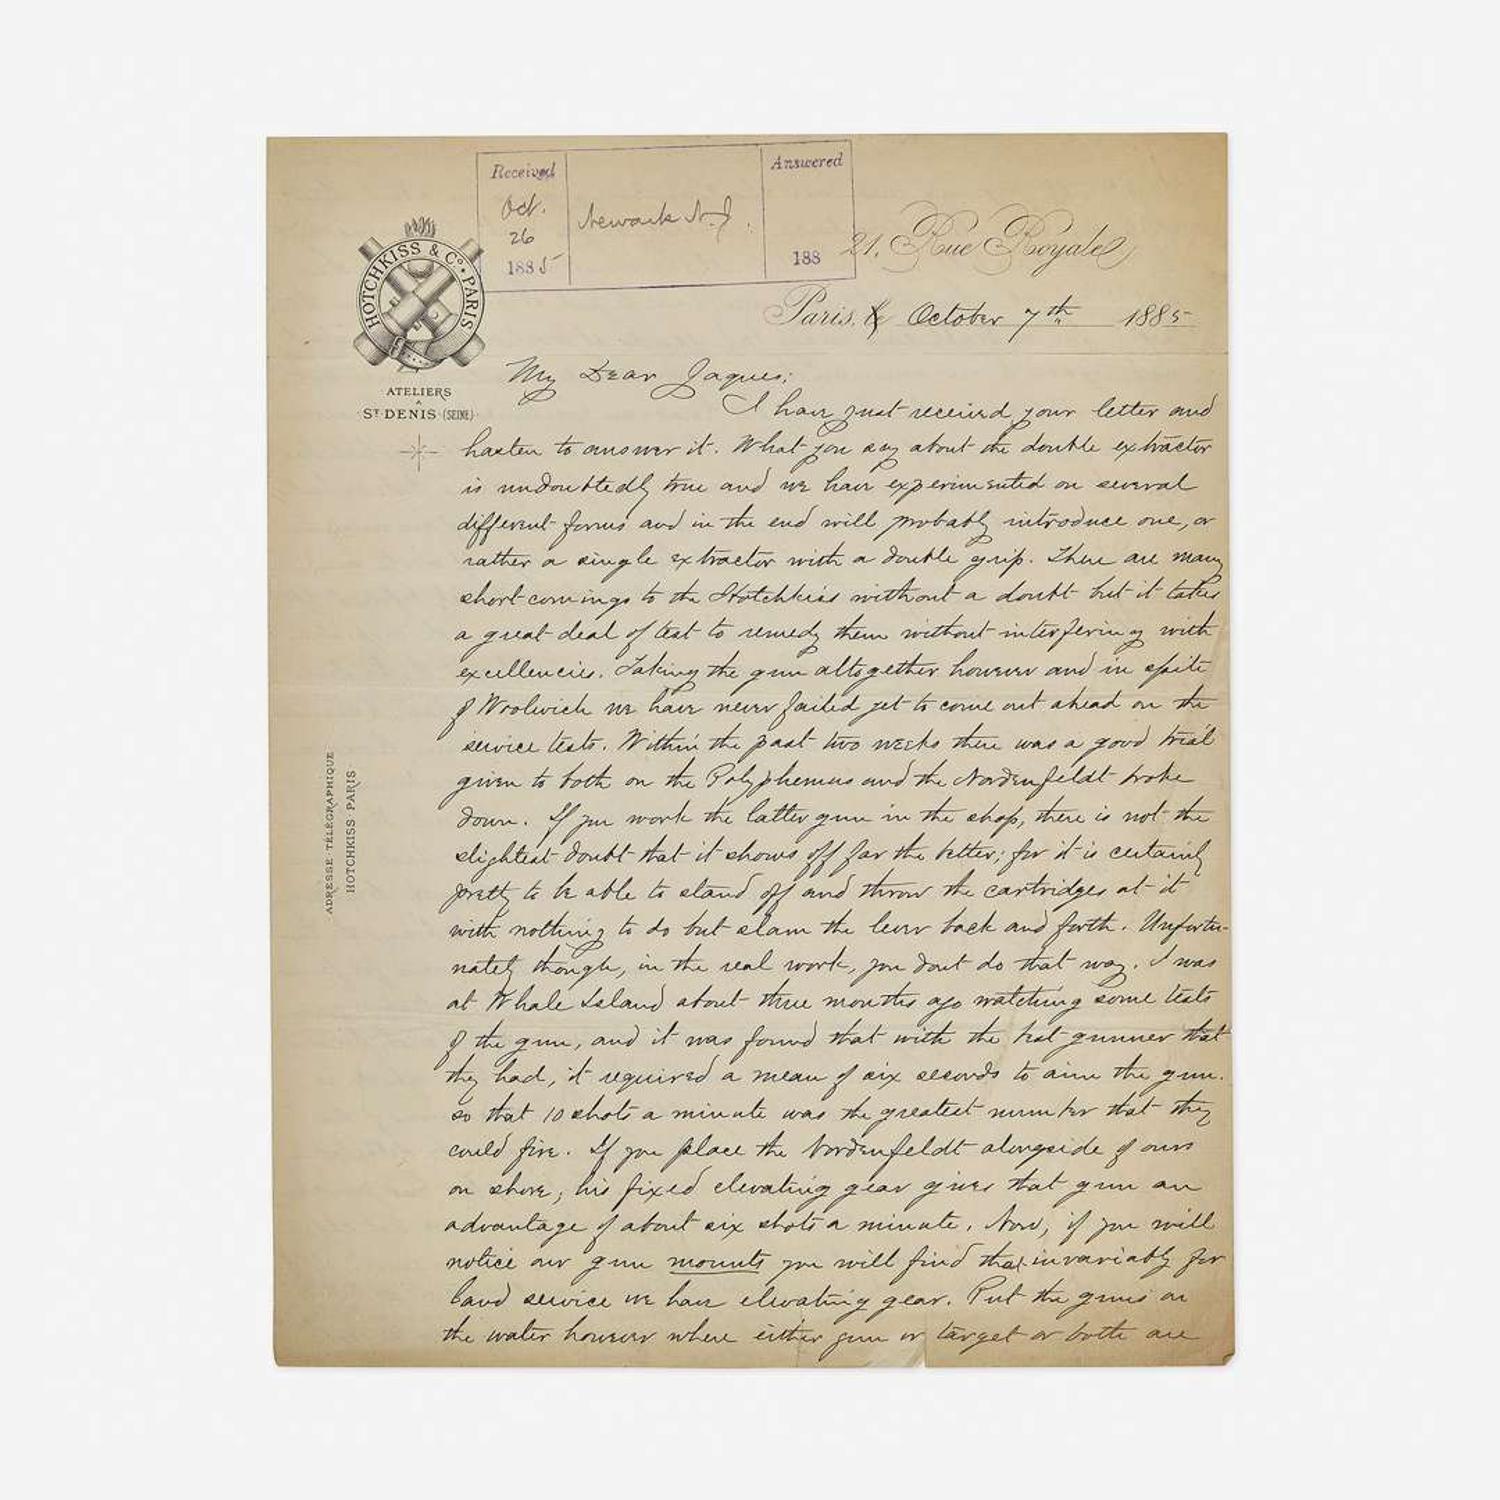 Received
Oct.
26
1885
Newark N.J.
Answered
188
HOTCHKISS & Co. PARIS
ATELIERS
À
ST DENIS (SEINE)
21, Rue Royale
Paris, le October 7th 1885
My Dear Jaques;
I have just received your letter and
hasten to answer it. What you say about the double extractor
is undoubtedly true and we have experimented on several
different forms and in the end will probably introduce one, or
rather a single extractor with a double grip. There are many
short comings to the Hotchkiss without a doubt but it takes
a great deal of test to remedy them without interfering with
excellencies. Taking the gun altogether however and in spite
of Woolwich we have never failed yet to come out ahead on the
service tests. Within the past two weeks there was a good trial
given to both on the Polyphemus and the Nordenfeldt broke
down. If you work the latter gun in the shop, there is not the
slightest doubt that it shows off far the better; for it is certainly
pretty to be able to stand off and throw the cartridges at it
with nothing to do but slam the lever back and forth. Unfortu-
nately though, in the real work, you dont do that way. I was
at Whale Island about three months ago watching some tests
of the gun, and it was found that with the best gunner that
they had, it required a mean of six seconds to aim the gun.
so that 10 shots a minute was the greatest number that they
could fire. If you place the Nordenfeldt alongside of ours
on shore, his fixed elevating gear gives that gun an
advantage of about six shots a minute. Now, if you will
notice our gun mounts you will find that invariably for
land service we have elevating gear. Put the guns on
the water however where either gun or target or both are
ADRESSE TÉLÉGRAPHIQUE
HOTCHKISS PARIS